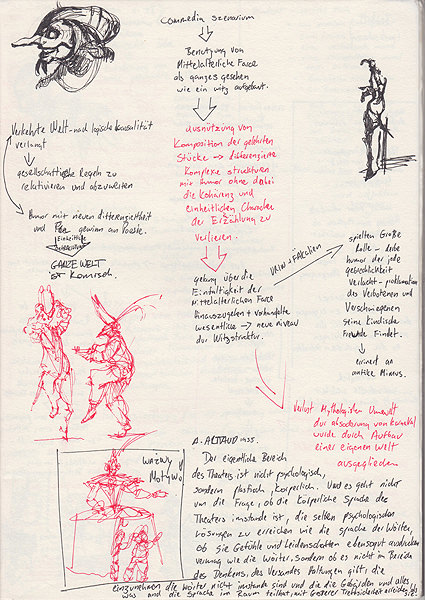 commedia szenarium
Benutzung von
Mittelalterliche Farce
als ganzes gesehen
wie ein witz aufgebaut.
Verkehrte Welt - nad logische Kausalität
verlangt
gesellschaftliche Regeln zu
relativieren und abzuwerten
Humor mit neuen differenziertheit
und gewinn an Poesie.
GANZE WELT
ist Komisch.
ausnutzung von
Komposition der gelehrten
Stücke → differenzierte
Komplexe strukturen
mit humor ohne dabei
die Kohärenz und
einheitlichen Charakter
der Erzählung zu
verlieren.
gehung über die
Einfältigkeit der
Mittelalterlichen Farce
hinauszugehen + verknüpfte
→ neue niveau
der Witzstruktur.
URIN + FÄKALIEN
spielten Große
Rolle - derbe
humor der jede
verlacht - proklamation
des Verbotenen und
Verschwiegenen
seine Kindische
Freude Findet.
erinert an
antike Mimus.
Verlust Mythologischen Umwelt
dur absoderung von karneval
wurde durch Aufbau
einer eigenen Welt
ausgeglichen
ważny
Motyw
A. ARTAUD
Der eigentliche Bereich
des Theaters ist nicht psychologisch,
sondern plastisch, Körperlich. Und es geht nicht
um die Frage, ob die Körperliche Sprache des
Theaters imstande ist, die selben psychologischen
Lösungen zu erreichen wie die sprache der Wörter,
ob sie Gefühle und Leidenschaften ebensogut ausdrücken
vermag wie die Wörter. Sondern ob es nicht im Bereich
des Denkens, des Verstandes Haltungen gibt, die
einzunehmen die Wörter nicht imstande sind und die die Gebärden und alles,
was and die Sprache im Raum teilhat, mit grösserer Treffsicherheit erreichen,